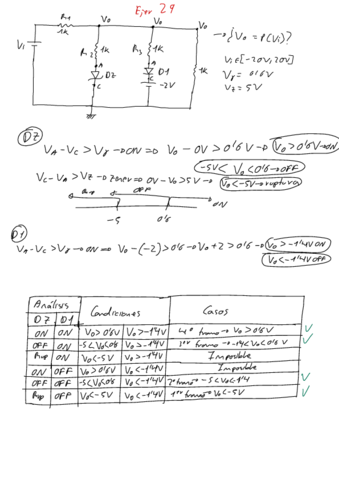 Ejer 29
R1
1k
Vo
Vo
Vo
→ ¿Vo = f(Vi)?
Vi
R2
1k
R3
1k
1k
Vi ∈ [-20V, 20V]
Vγ = 0'6V
Vz = 5V
A
DZ
C
A
D1
C
-2V
DZ
VA - VC > Vγ → ON ⇒ Vo - 0V > 0'6V → Vo > 0'6V → ON
-5V < Vo < 0'6 → OFF
VC - VA > VZ → zener ⇒ 0V - Vo > 5V → Vo < -5V → ruptura
Rup OFF ON
-5 0'6
D1
VA - VC > Vγ → ON ⇒ Vo - (-2) > 0'6 → Vo + 2 > 0'6 → Vo > -1'4V ON
Vo < -1'4V OFF
Análisis Condiciones Casos
DZ D1
ON ON Vo > 0'6V Vo > -1'4V 4º tramo → Vo > 0'6V ✓
OFF ON -5 < Vo < 0'6 Vo > -1'4V tramo → -1'4 < Vo < 0'6 V ✓
Rup ON Vo < -5V Vo > -1'4V Imposible
ON OFF Vo > 0'6V Vo < -1'4V Imposible
OFF OFF -5 < Vo < 0'6 Vo < -1'4V 2º tramo → -5 < Vo < -1'4 ✓
Rup OFF Vo < -5V Vo < -1'4V 1er tramo → Vo < -5V ✓